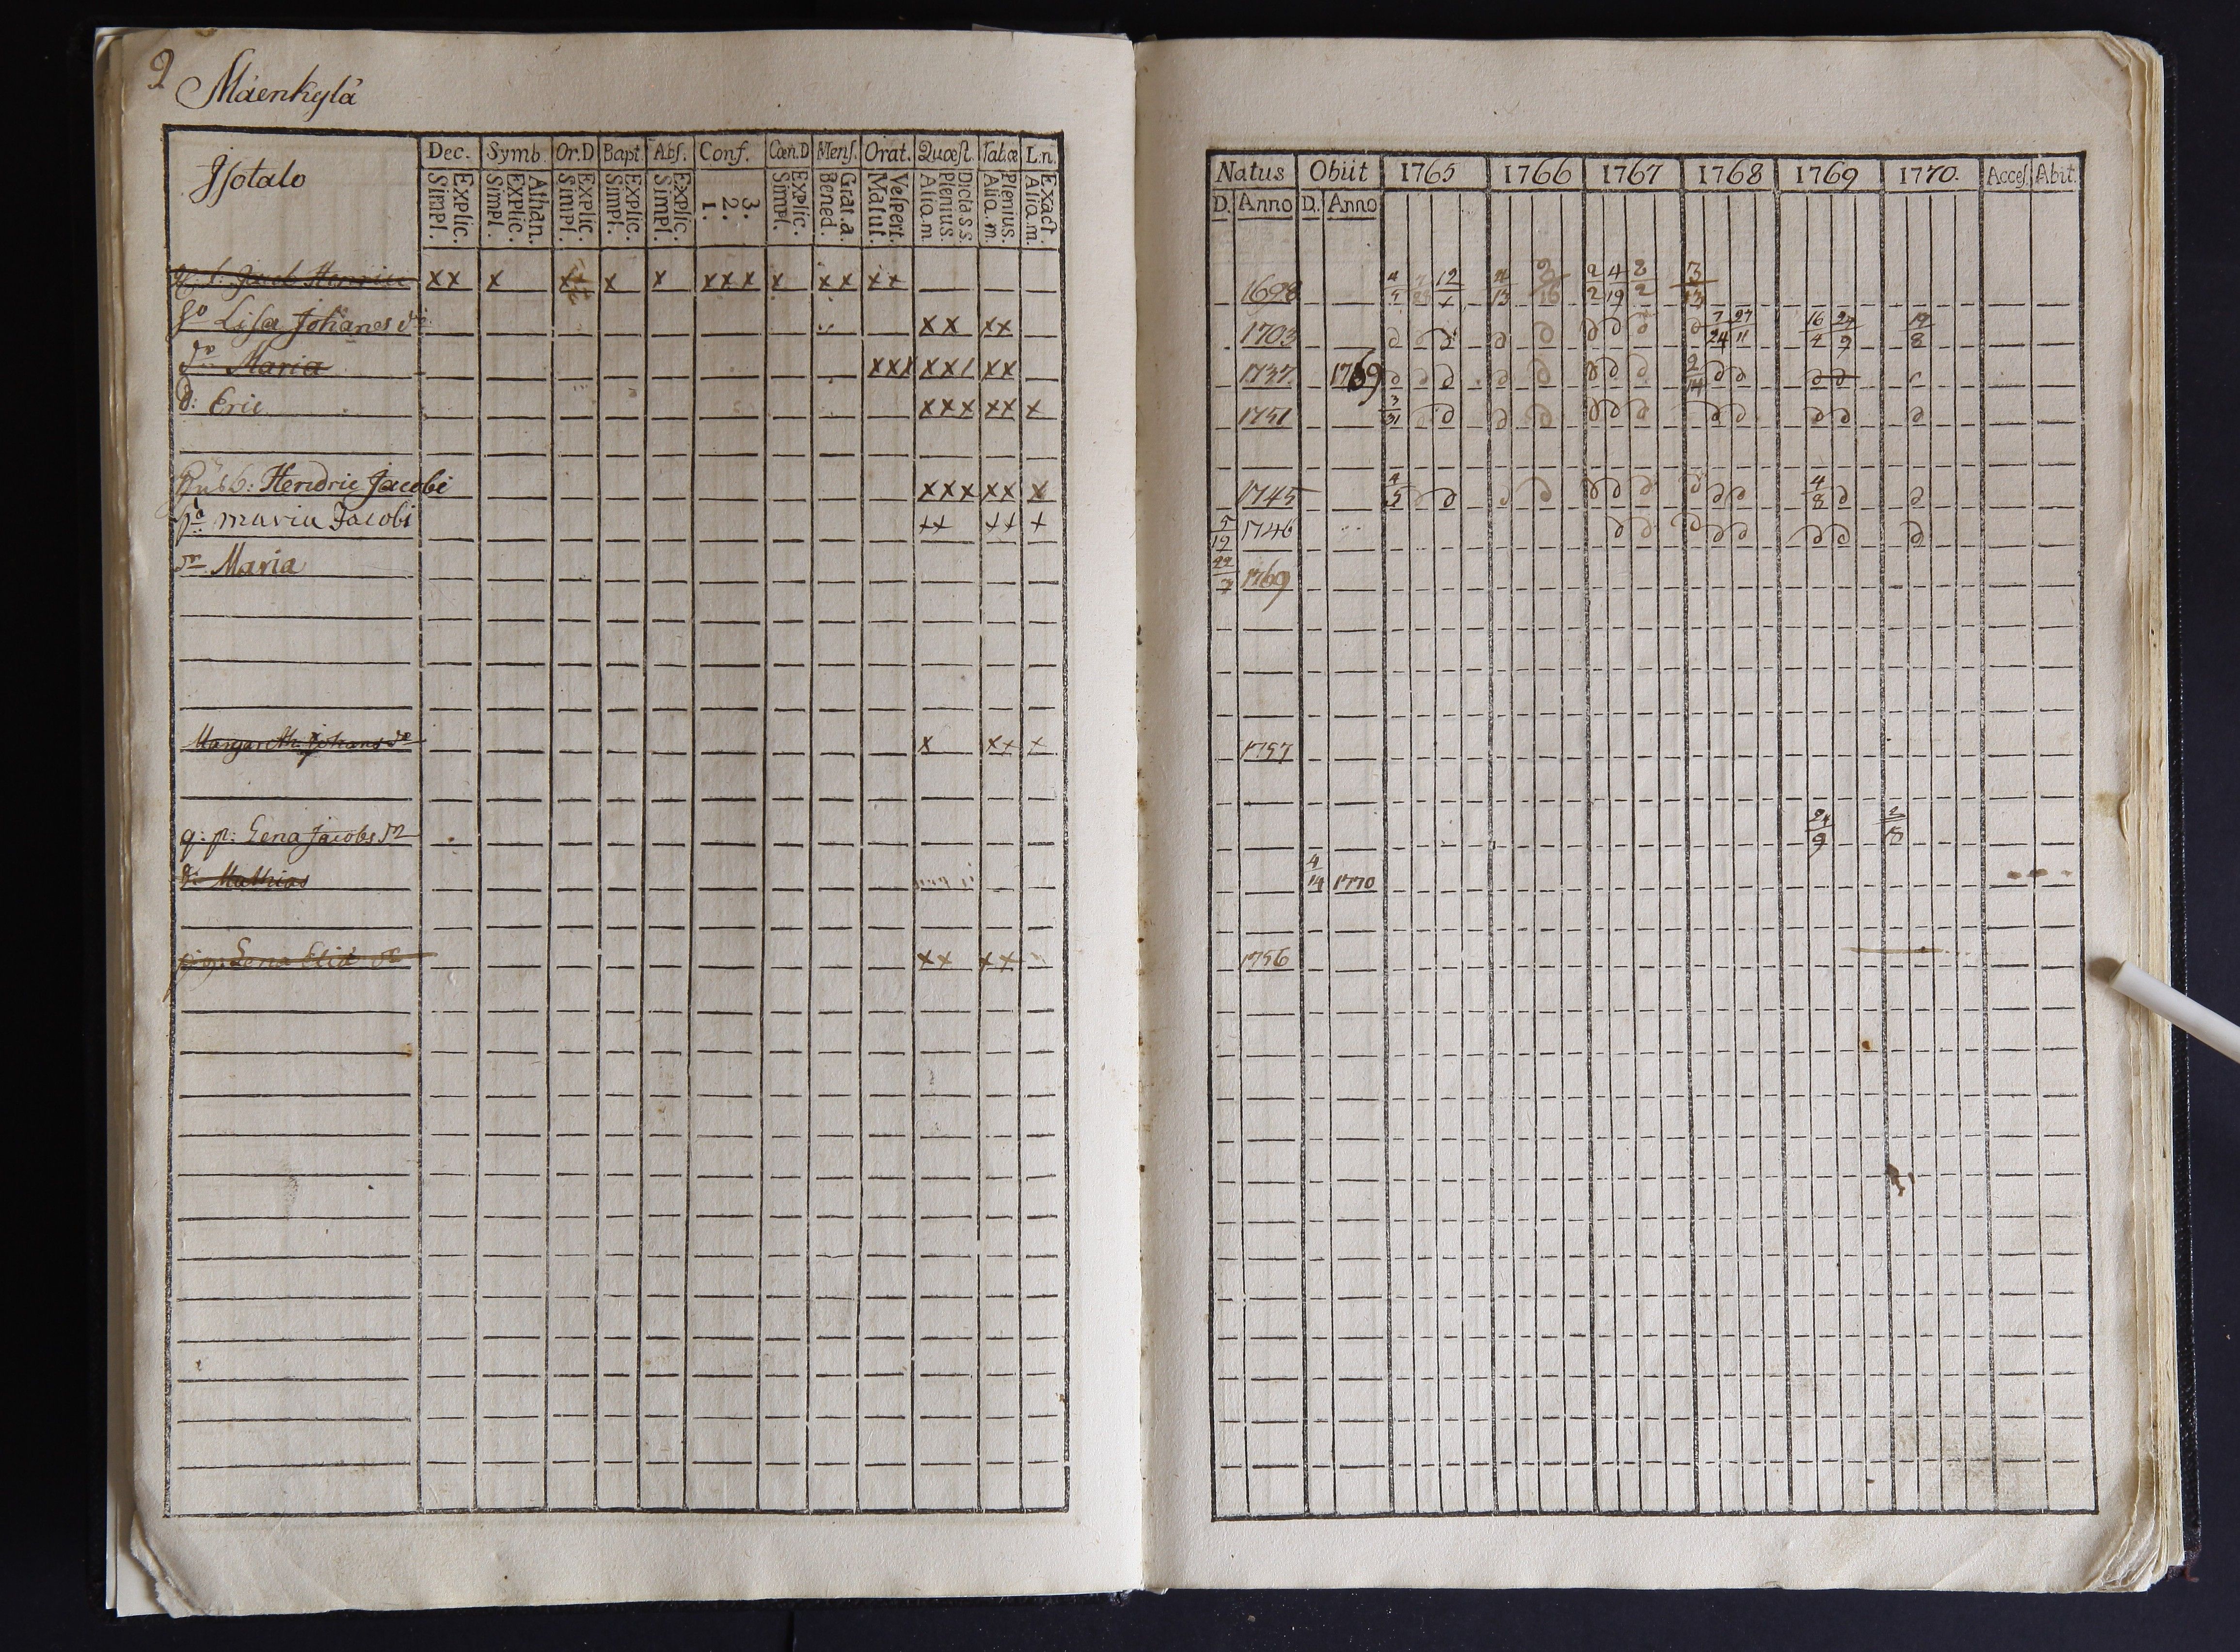 2 Mäenkylä
Jsotalo
Dec. Symb. Or.D Bapt. Abs. Conf. Cœn.D Mens. Orat. Quæst. Tab.œ L.n.
Explic. Simpl. Athan. Explic. Simpl. Explic. Simpl. Explic. Simpl. Explic. Simpl. 3. 2. 1. Explic. Simpl. Grat.a. Bened. Vespert. Matut. Dicta S.s. Plenius. Alio.m. Plenius. Alio.m. Exact. Alio.m.
Jacob Henric xx x x x xxx x xx xx
Lisa Johanes dr xx xx
dr Maria xxx xx/ xx
d: Eric xxx xx x
Hendric Jacobi xxx xx x
Maria Jacobi ++ ++ +
dr Maria
Margareth Johans dr x x+ +
q: p: Lena Jacobs dr
d: Mathias
Lena dr xx xx
Natus Obiit 1765 1766 1767 1768 1769 1770. Acces. Abit.
D. Anno D. Anno
1698 4/5 12/+ 4/13 2/16 2/2 4/19 2/2 3/13
1703 7/24 27/11 16/4 24/9 19/8
1737 1769 2/14
1751 3/31
1745 4/5 4/8
5/12 1746
22/7 1769
1757
24/9
4/14 1770
1756